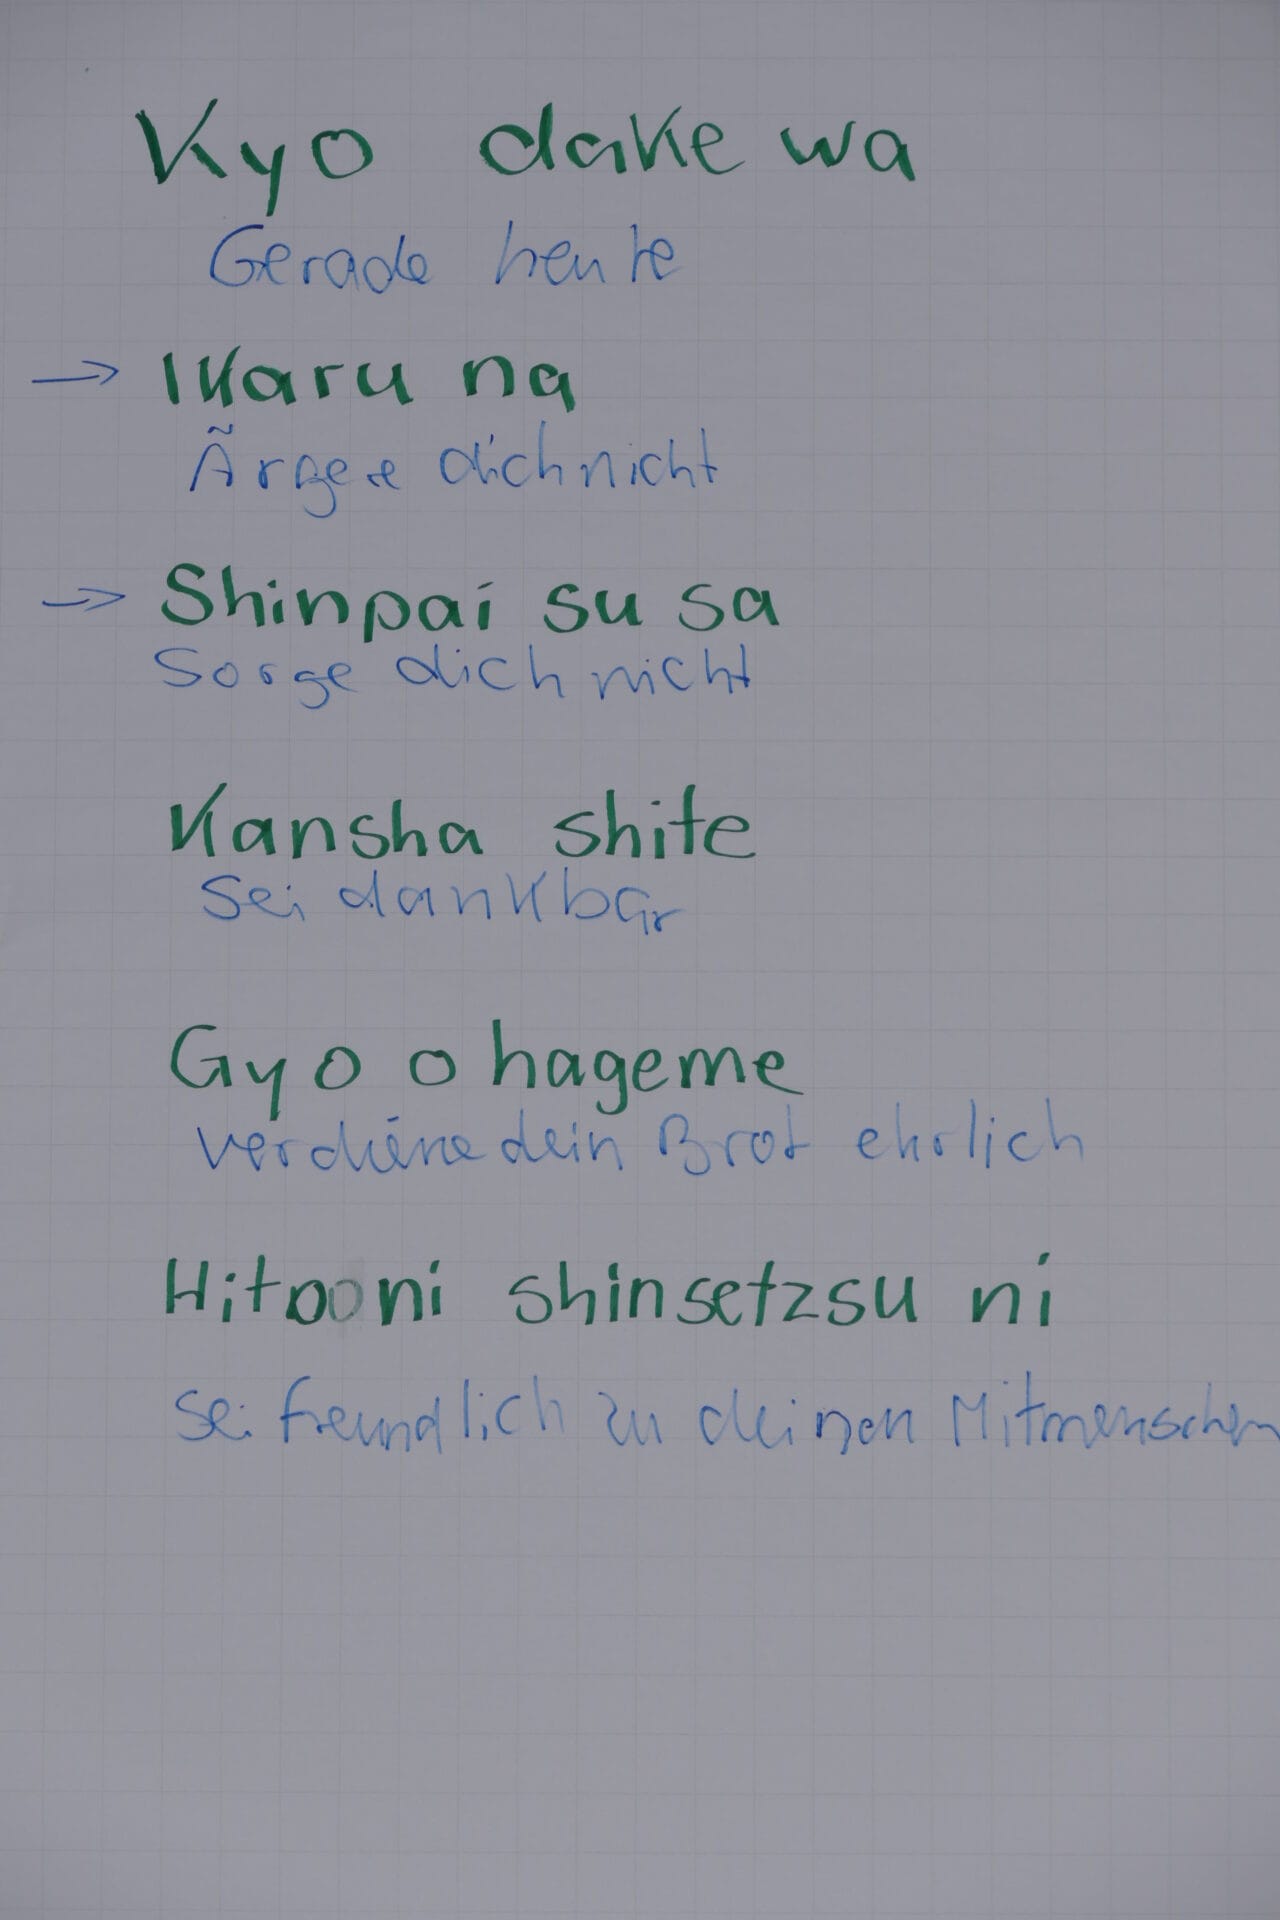 Kyo dake wa
Gerade heute
→ Ikaru na
Ärgere dich nicht
→ Shinpai su sa
Sorge dich nicht
Kansha shite
Sei dankbar
Gyo o hageme
verdiene dein Brot ehrlich
Hitooni shinsetzsu ni
Sei freundlich zu deinen Mitmenschen